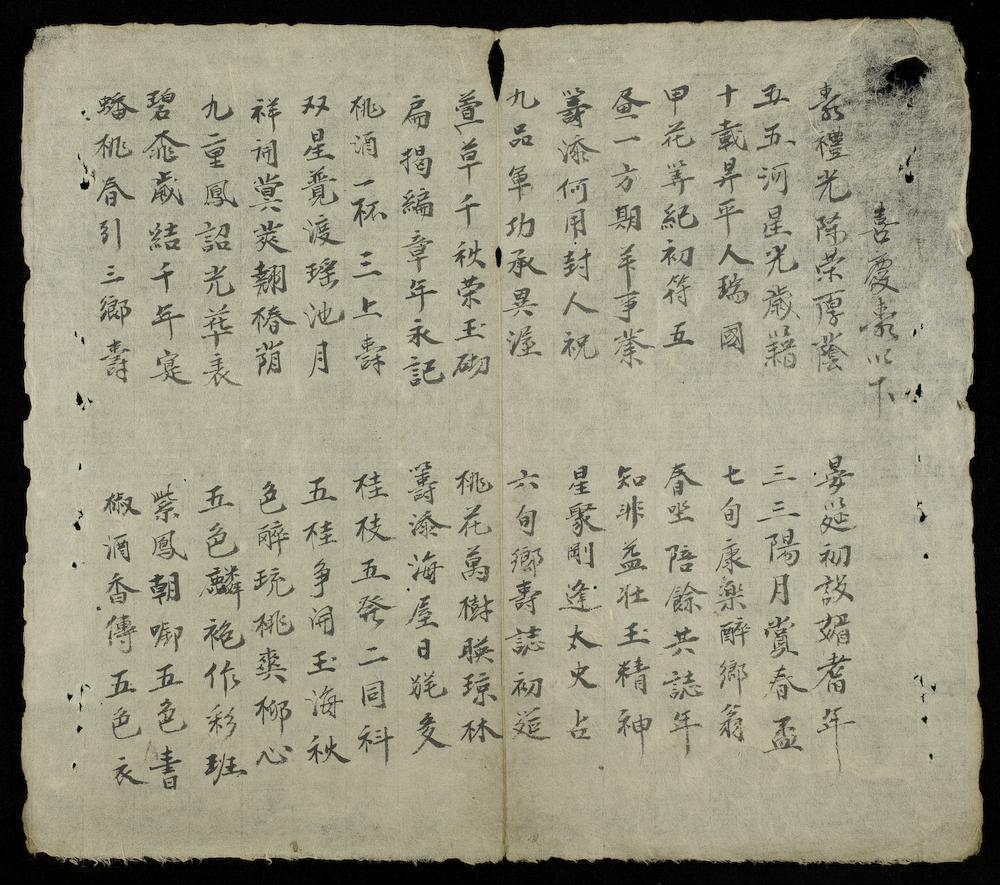 喜慶壽以下
壽禮光陳荣厚蔭 晏筵初設媚耆年
五五河星光歲籍 三三陽月賞春盃
十載昇平人瑞國 七旬康樂醉鄉翁
甲花筭紀初符五 春坐陪餘共誌年
一方期羊事業 知非益壮玉精神
籌添何用封人祝 星聚剛逢太史占
九品軍功承異渥 六旬鄉壽誌初筵
萱草千秋荣玉砌 桃花萬樹暎琼林
扁揭編章年永記 籌添海屋日多
桃酒一杯三上壽 桂枝五發二同科
双星覓渡瑤池月 五桂争開玉海秋
祥詞蓂莢翹椿蔭 色醉琉桃爽柳心
九重鳳詔光華衮 五色麟袍作彩班
碧桃歲結千年寔 紫鳳朝啣五色書
蟠桃春引三鄉壽 椒酒香傳五色衣